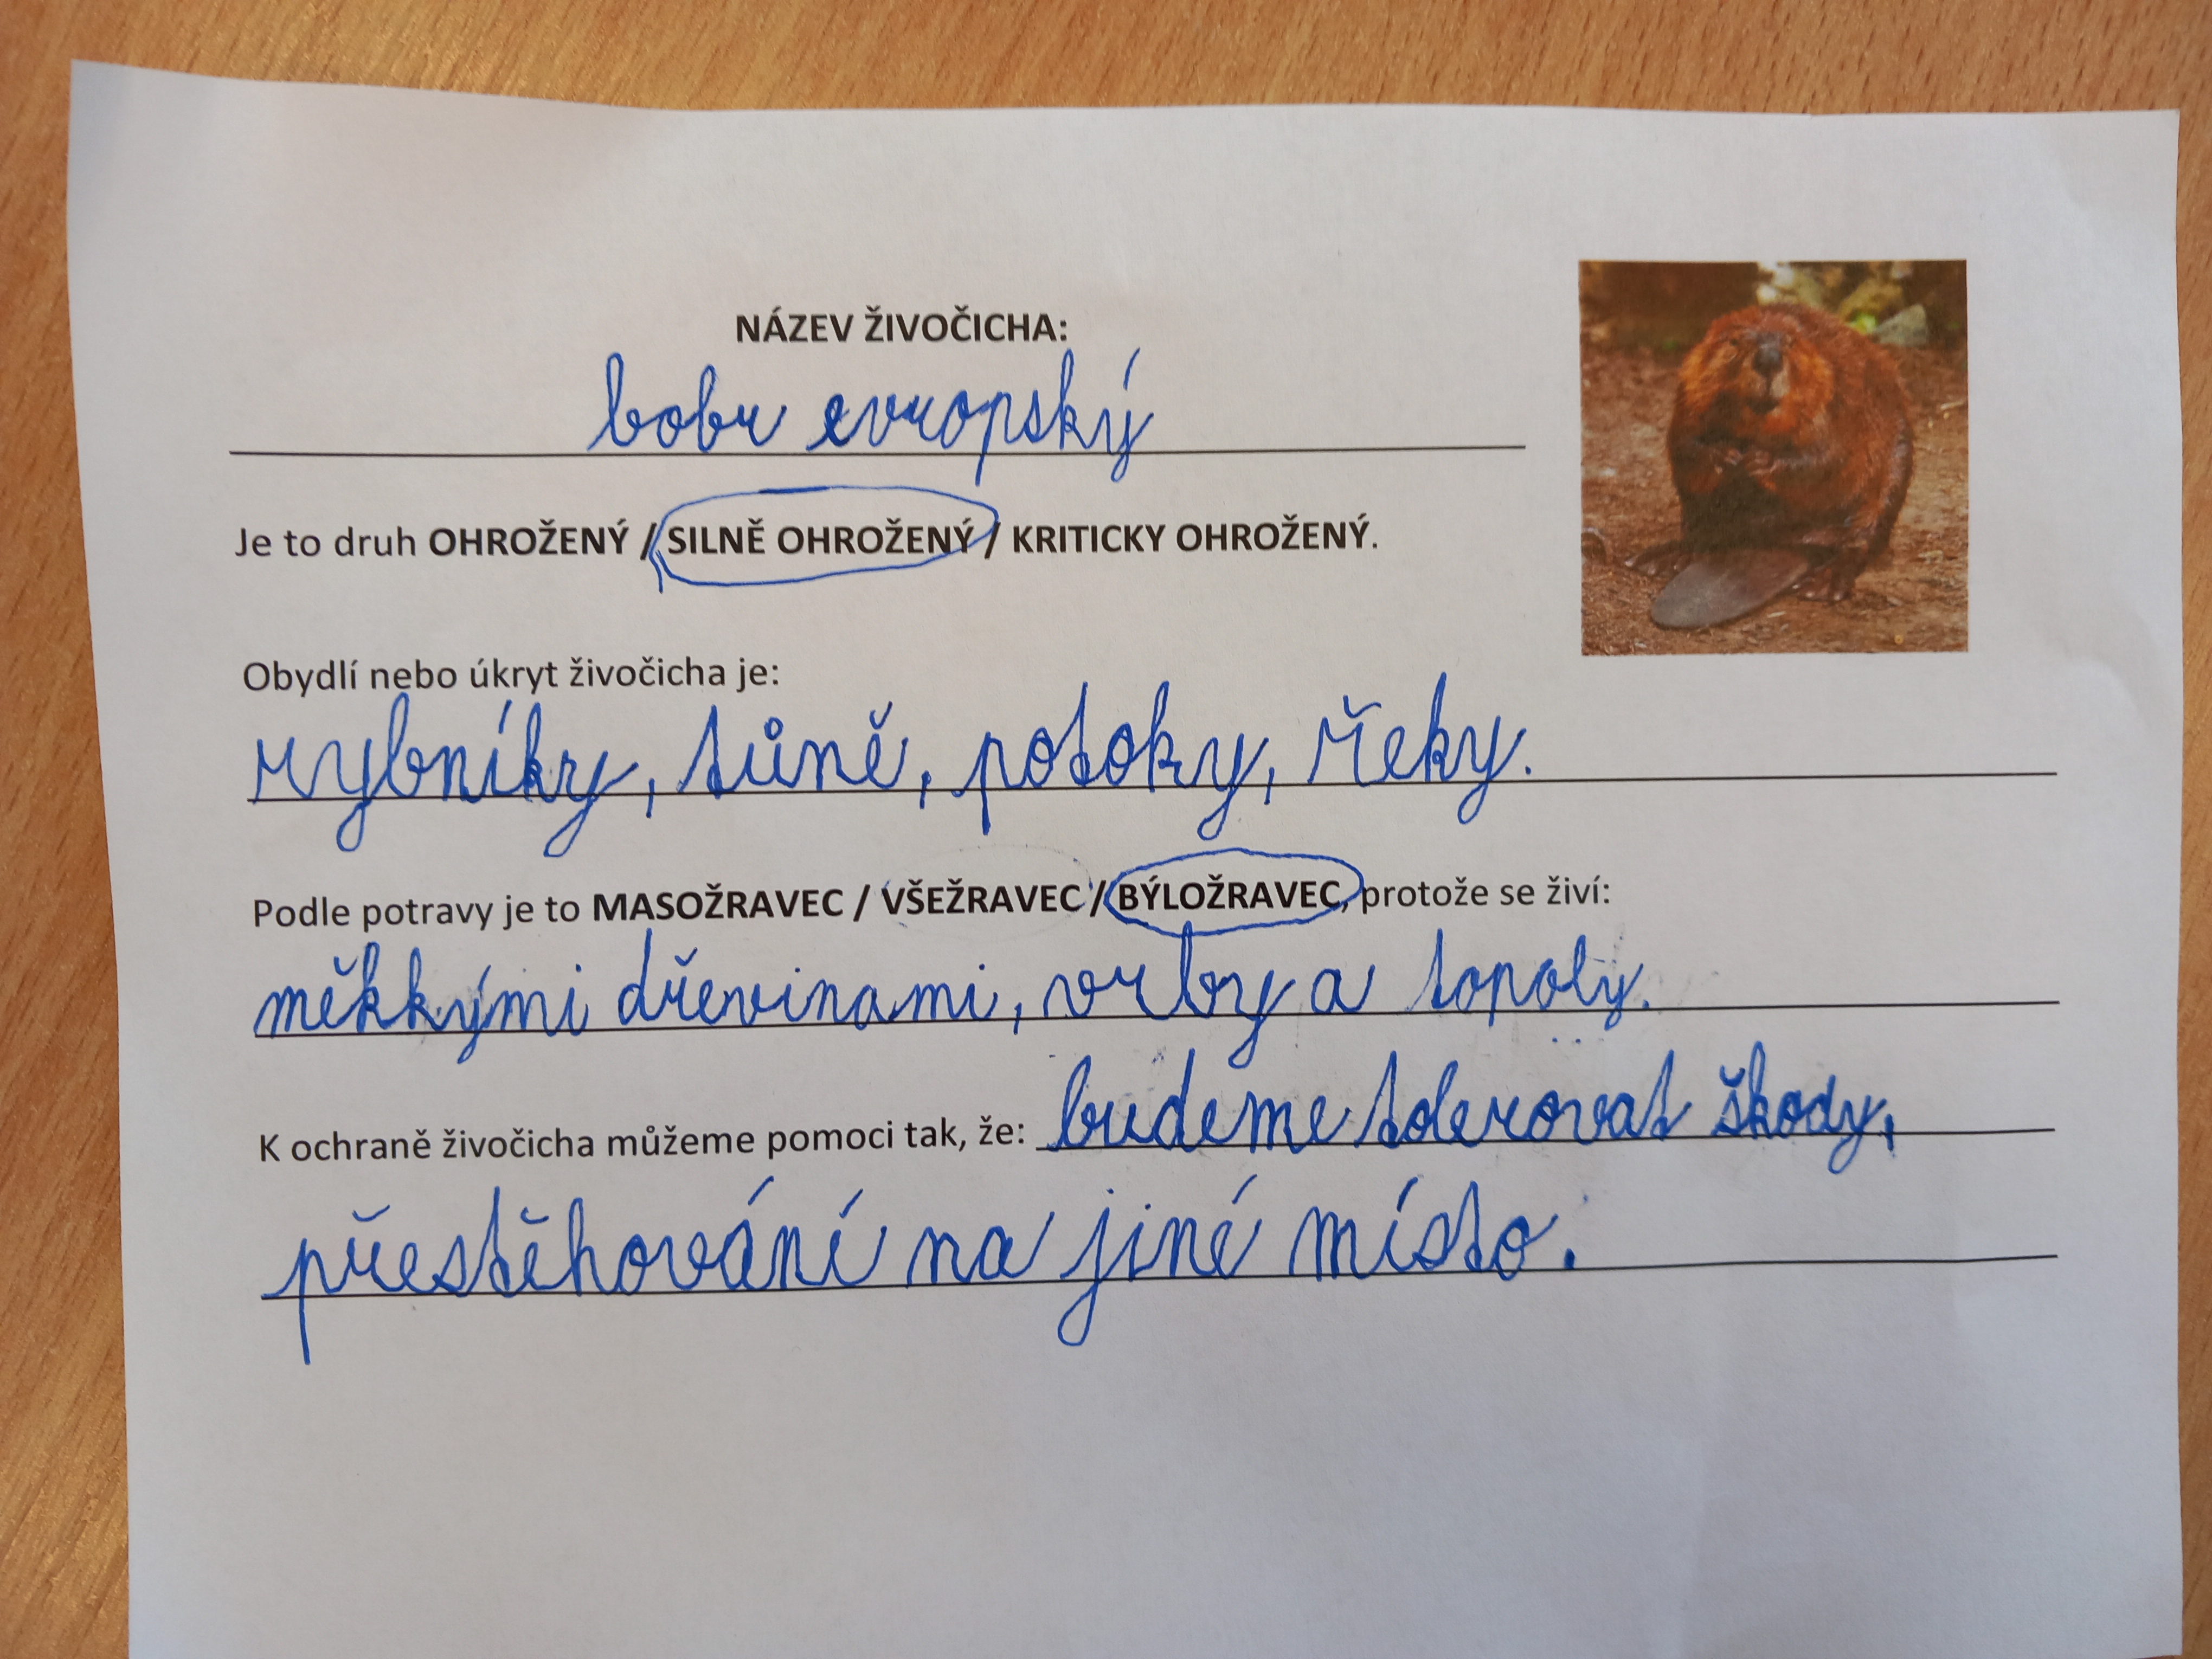 NÁZEV ŽIVOČICHA:
bobr evropský
Je to druh OHROŽENÝ / SILNĚ OHROŽENÝ / KRITICKY OHROŽENÝ.
Obydlí nebo úkryt živočicha je:
rybníky, tůně, potoky, řeky.
Podle potravy je to MASOŽRAVEC / VŠEŽRAVEC / BÝLOŽRAVEC, protože se živí:
měkkými dřevinami, vrby a topoly.
K ochraně živočicha můžeme pomoci tak, že: budeme tolerovat škody,
přestěhování na jiné místo.